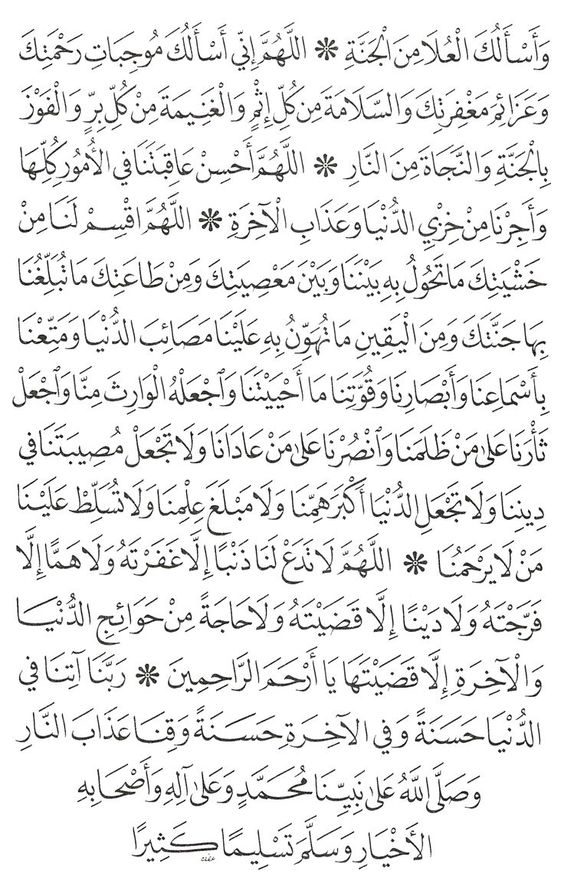 وَأَسْأَلُكَ الْعُلَا مِنَ الْجَنَّةِ ❋ اللَّهُمَّ إِنِّي أَسْأَلُكَ مُوجِبَاتِ رَحْمَتِكَ
وَعَزَائِمَ مَغْفِرَتِكَ وَالسَّلَامَةَ مِن كُلِّ إِثْمٍ وَالْغَنِيمَةَ مِنْ كُلِّ بِرٍّ وَالْفَوْزَ
بِالْجَنَّةِ وَالنَّجَاةَ مِنَ النَّارِ ❋ اللَّهُمَّ أَحْسِنْ عَاقِبَتَنَا فِي الْأُمُورِ كُلِّهَا
وَأَجِرْنَا مِنْ خِزْيِ الدُّنْيَا وَعَذَابِ الْآخِرَةِ ❋ اللَّهُمَّ اقْسِمْ لَنَا مِنْ
خَشْيَتِكَ مَا تَحُولُ بِهِ بَيْنَنَا وَبَيْنَ مَعْصِيَتِكَ وَمِنْ طَاعَتِكَ مَا تُبَلِّغُنَا
بِهَا جَنَّتَكَ وَمِنَ الْيَقِينِ مَا تُهَوِّنُ بِهِ عَلَيْنَا مَصَائِبَ الدُّنْيَا وَمَتِّعْنَا
بِأَسْمَاعِنَا وَأَبْصَارِنَا وَقُوَّتِنَا مَا أَحْيَيْتَنَا وَٱجْعَلْهُ الْوَارِثَ مِنَّا وَٱجْعَلْ
ثَأْرَنَا عَلَى مَنْ ظَلَمَنَا وَٱنْصُرْنَا عَلَى مَنْ عَادَانَا وَلَا تَجْعَلْ مُصِيبَتَنَا فِي
دِينِنَا وَلَا تَجْعَلِ الدُّنْيَا أَكْبَرَ هَمِّنَا وَلَا مَبْلَغَ عِلْمِنَا وَلَا تُسَلِّطْ عَلَيْنَا
مَنْ لَا يَرْحَمُنَا ❋ اللَّهُمَّ لَا تَدَعْ لَنَا ذَنْبًا إِلَّا غَفَرْتَهُ وَلَا هَمًّا إِلَّا
فَرَّجْتَهُ وَلَا دَيْنًا إِلَّا قَضَيْتَهُ وَلَا حَاجَةً مِنْ حَوَائِجِ الدُّنْيَا
وَالْآخِرَةِ إِلَّا قَضَيْتَهَا يَا أَرْحَمَ الرَّاحِمِينَ ❋ رَبَّنَا آتِنَا فِي
الدُّنْيَا حَسَنَةً وَفِي الْآخِرَةِ حَسَنَةً وَقِنَا عَذَابَ النَّارِ
وَصَلَّى اللَّهُ عَلَى نَبِيِّنَا مُحَمَّدٍ وَعَلَى آلِهِ وَأَصْحَابِهِ
الْأَخْيَارِ وَسَلَّمَ تَسْلِيمًا كَثِيرًا